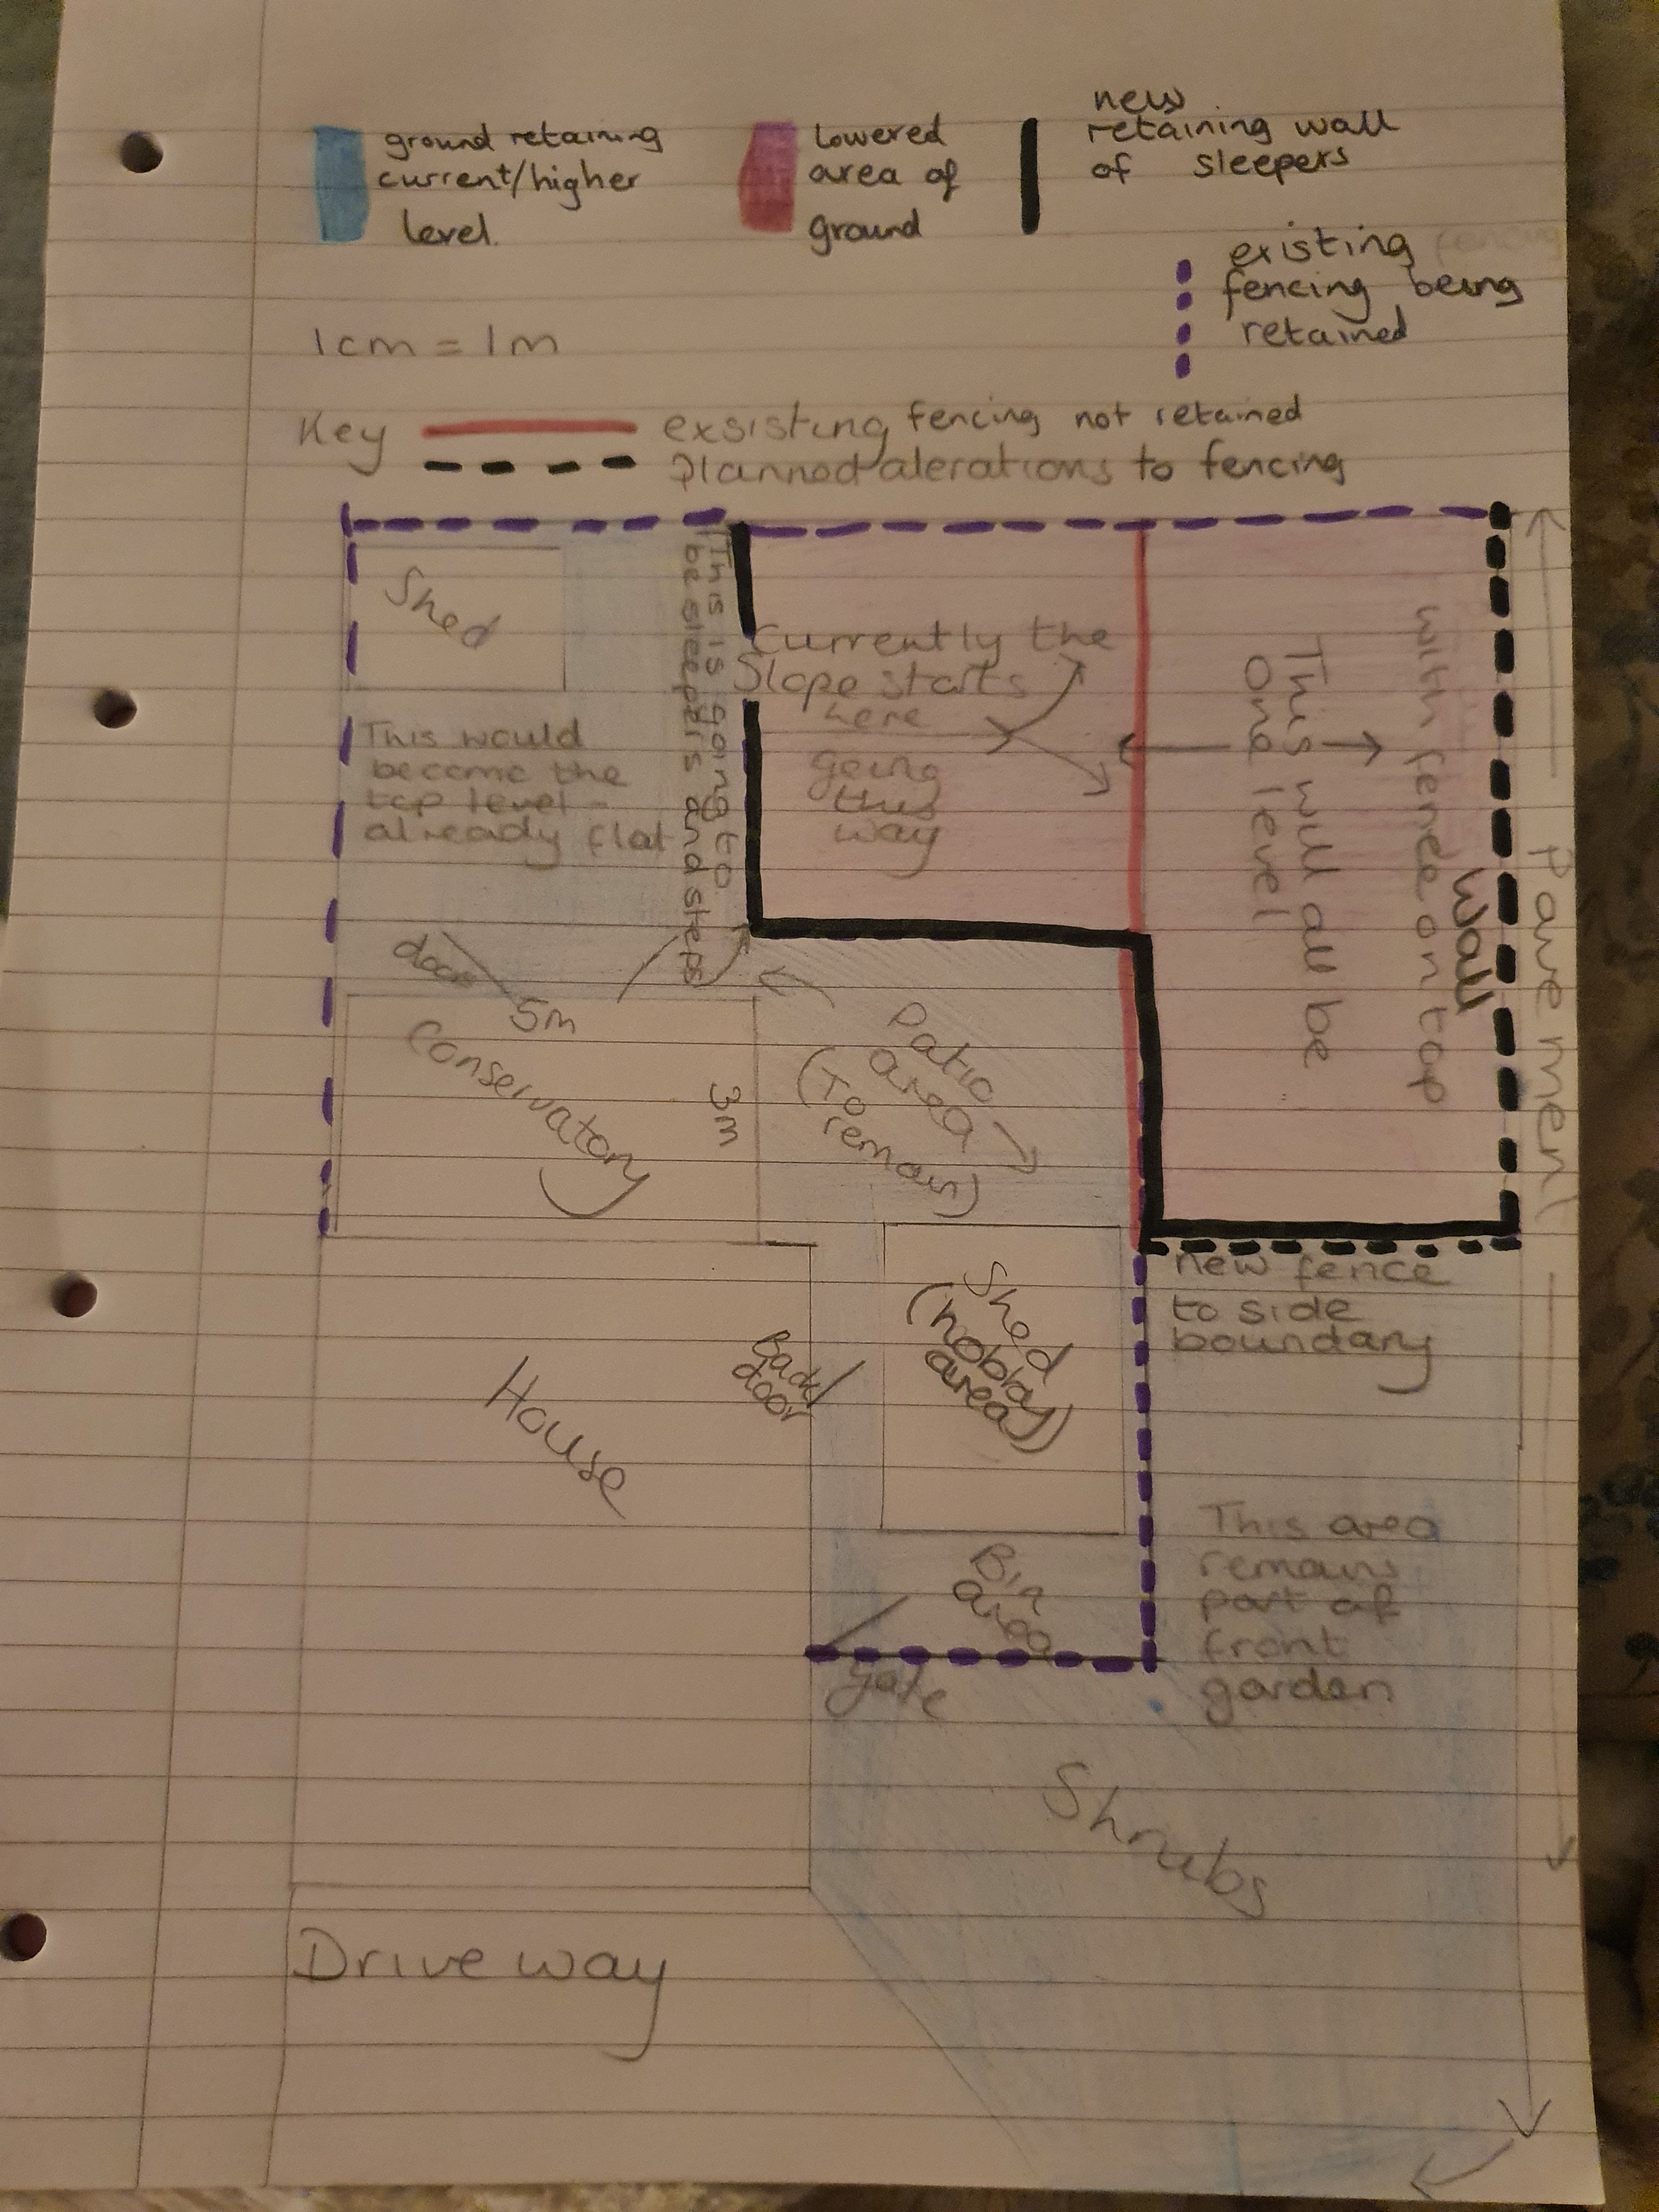 ground retaining
current/higher
level.
lowered
area of
ground
new
retaining wall
of sleepers
existing
fencing being
retained
1cm = 1m
Key
exsisting fencing not retained
planned alerations to fencing
Shed
This is going to
be sleepers and steps
Currently the
Slope starts
here
going
this
way
This will all be
one level
with fence on top
Wall
Pavement
This would
become the
top level -
already flat
door
5m
Conservatory
3m
Patio
area
(To
remain)
new fence
to side
boundary
Shed
(hobby
area)
Back
door
House
Bin
area
gate
This area
remains
part of
front
garden
Shrubs
Driveway